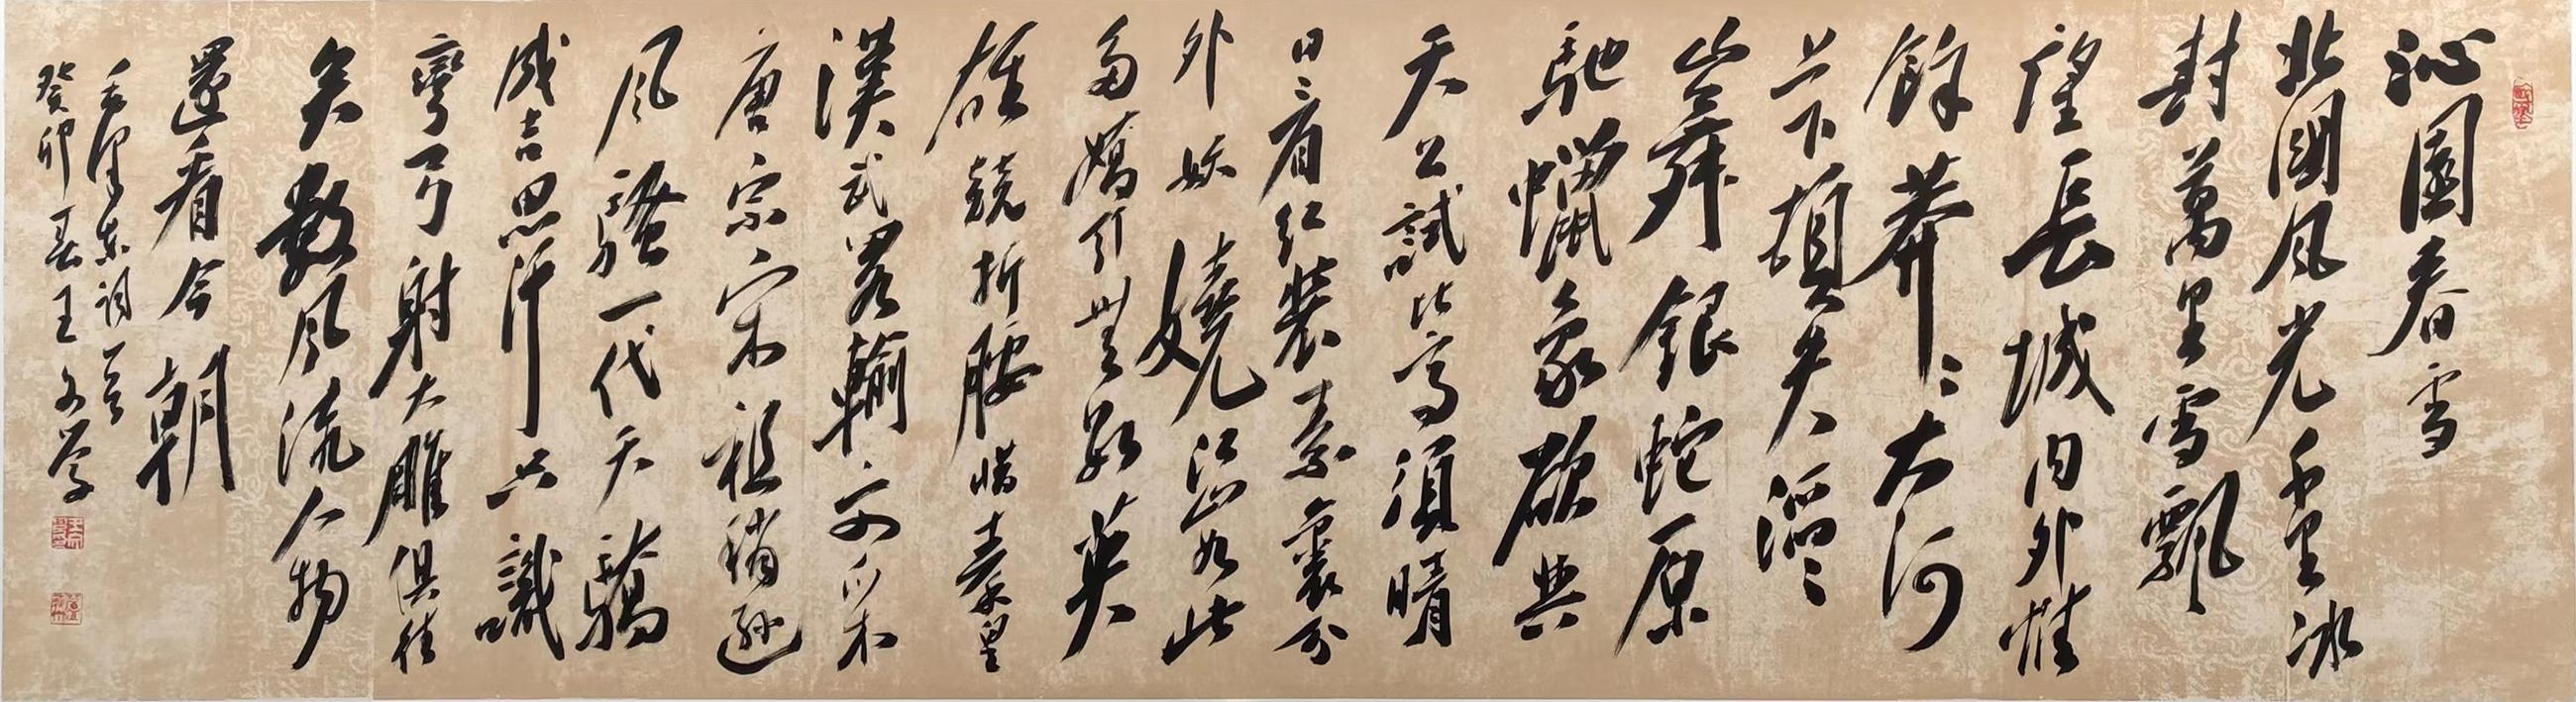 沁園春雪
北國风光千里冰
封萬里雪飄
望長城內外惟
餘莽〻大河
上下頓失滔〻
山舞銀蛇原
馳蠟象欲與
天公試比高須晴
日〻看红裝素裹分
外妖嬈江山如此
多嬌引無數英
雄競折腰惜秦皇
漢武畧輸文采
唐宗宋祖稍遜
风騷一代天驕
成吉思汗只識
彎弓射大雕俱往
矣數风流人物
還看今朝
毛澤东詞一首
癸卯春王文学